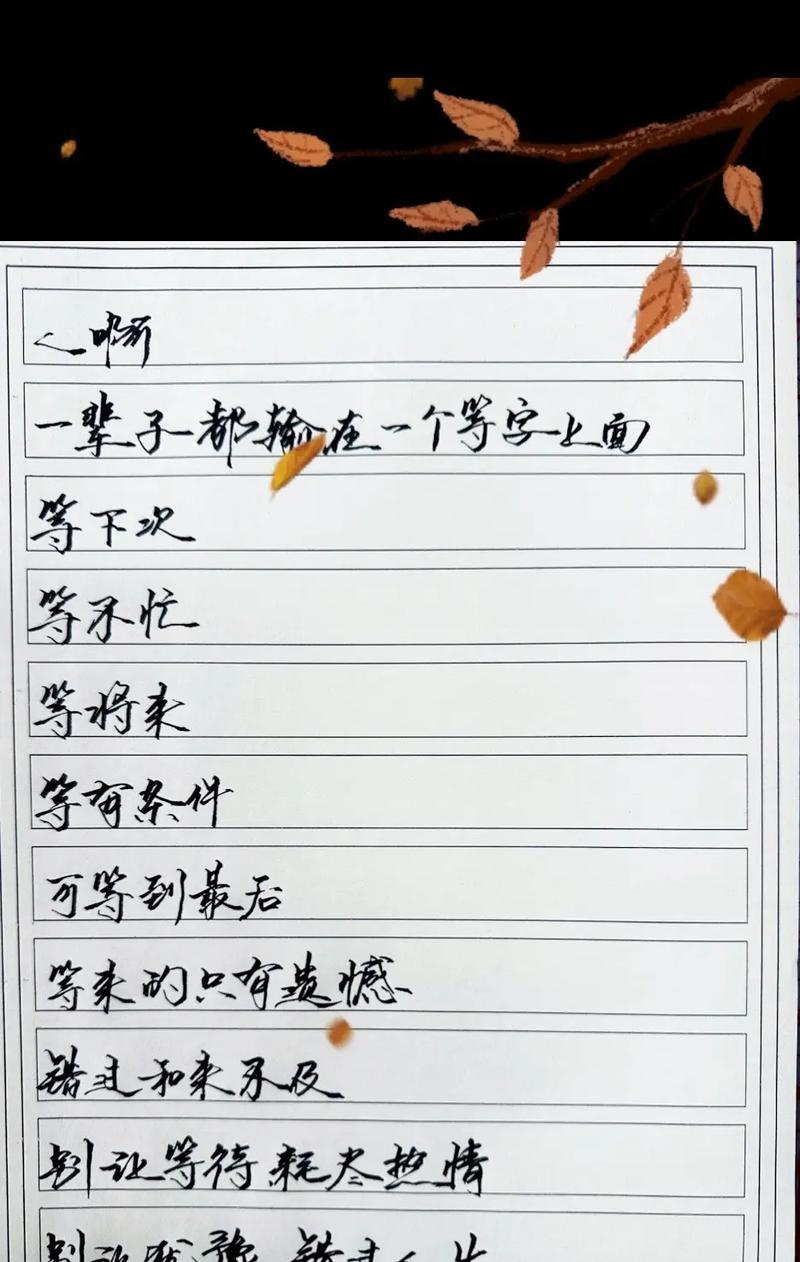 人啊
一辈子都输在一个等字上面
等下次
等不忙
等将来
等有条件
可等到最后
等来的只有遗憾
错过和来不及
别让等待耗尽热情
别让犹豫错过人生